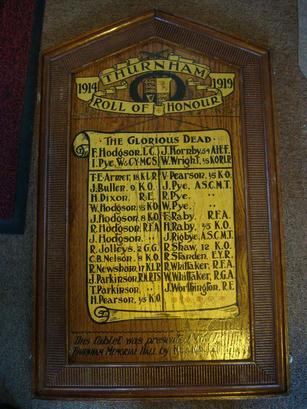 THURNHAM
1914 1919
ROLL OF HONOUR
THE GLORIOUS DEAD
F. HODGSON, L.C. J. HORNBY, 54 A.I.E.F.
I. PYE, W&C.Y.M.G.S. W. WRIGHT, ⅕ K.O.R.L.R
T.E. ARMER, 18 K.L.R V. PEARSON, ⅕ K.O.
J. BULLEN, 9 K.O. J. PYE, A.S.C.M.T.
H. DIXON, R.E R. PYE,
W. HODGSON, ⅕ K.O W. PYE,
J. HODGSON, 8 K.O F. RABY, R.F.A.
R. HODGSON, R.F.A H. RABY, ⅖ K.O.
J. HODGSON, " J. RIGBYE, A.S.C.M.T.
R. JOLLEYS, 2 G.G. R. SHAW, 12 K.O.
C.B. NELSON, 8 K.O. R. STANDEN, E.Y.R.
R. NEWSHAM, 17 K.L.R R. WHITTAKER, R.F.A
J. PARKINSON, R.N.R.T.S W. WHITTAKER, R.G.A.
T. PARKINSON, " J. WORTHINGTON, R.E
H. PEARSON, ⅕ K.O.
This Tablet was presented
Thurnham Memorial Hall by